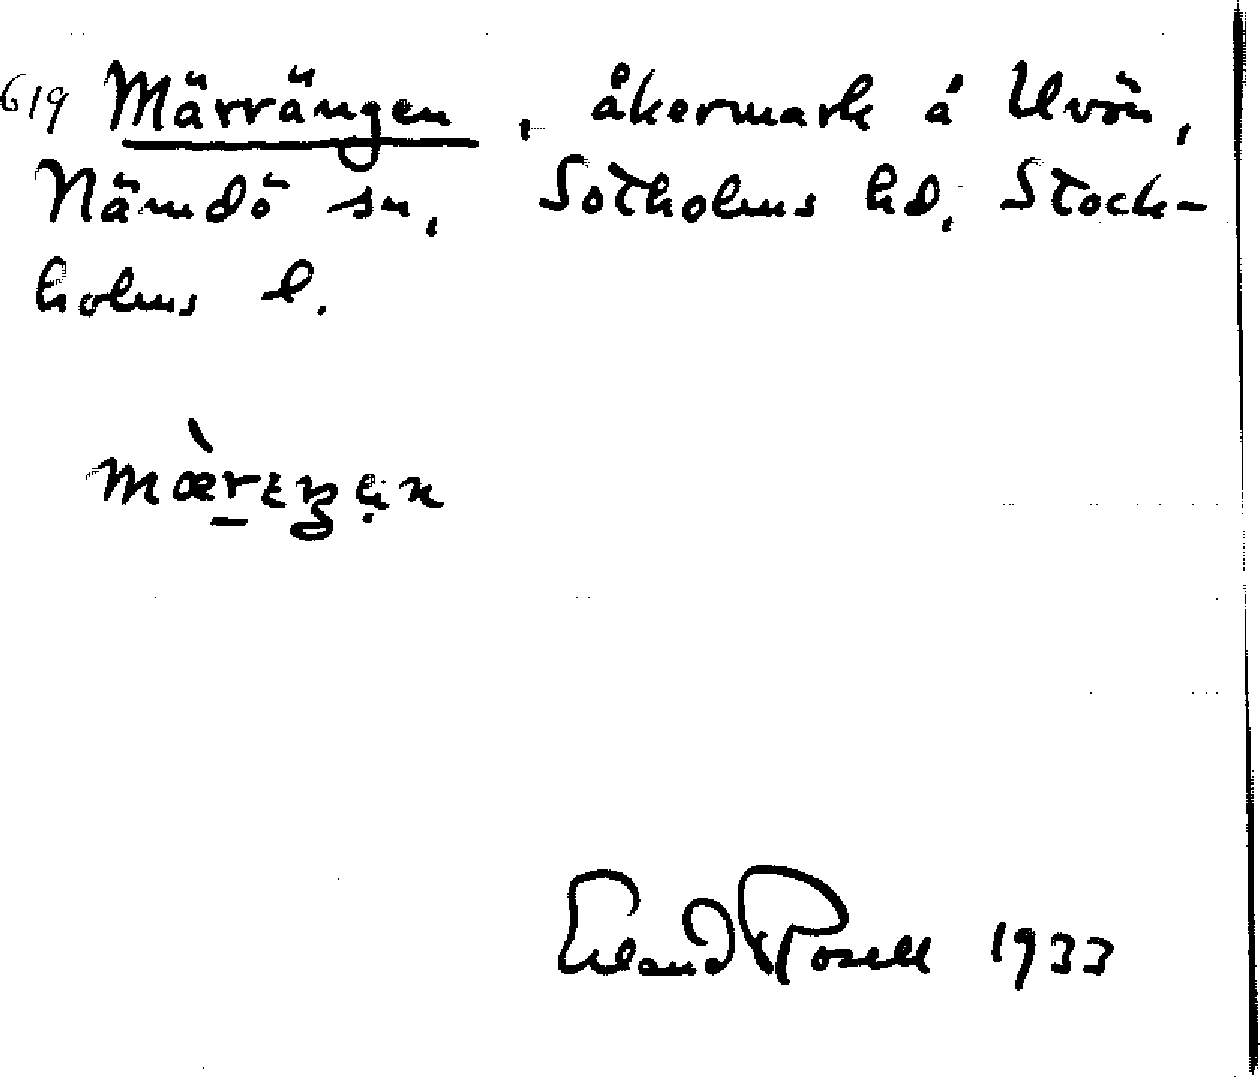 619 Märrängen, åkermark á Uvön,
Nämdö sn, Sotholms hd, Stock-
holms l.
mæ̀rɛŋẹn
Erland Rosell 1933